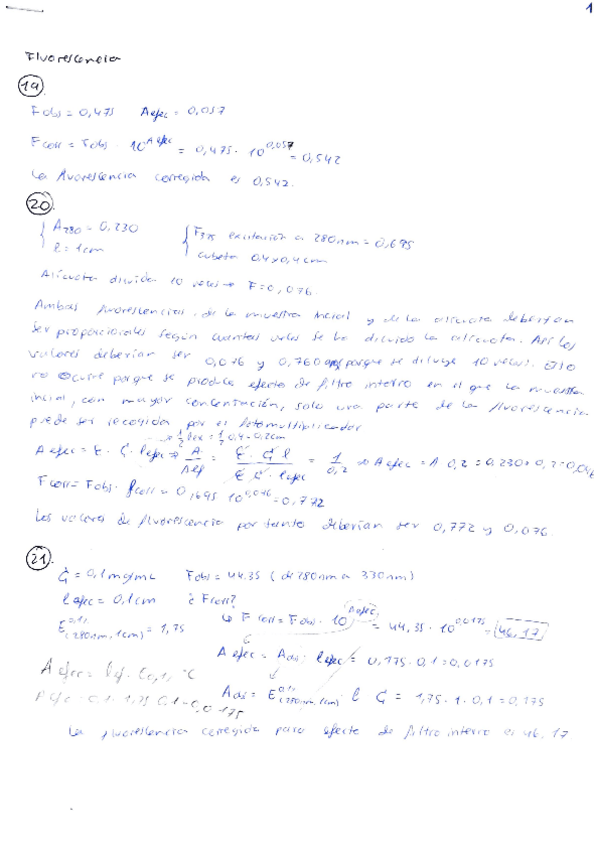 1
Fluorescencia
19.
Fobs = 0,475   Aefec = 0,057
Fcorr = Fobs · 10^Aefec = 0,475 · 10^0,057 = 0,542
La fluorescencia corregida es 0,542.
20.
A280 = 0,230
l = 1cm
F375 excitación a 280nm = 0,695
cubeta 0,4x0,4cm
Alícuota diluida 10 veces → F = 0,076
Ambas fluorescencias, de la muestra inicial y de la alícuota deberían
ser proporcionales según cuantas veces se ha diluido la alícuota. Así los
valores deberían ser 0,076 y 0,760 porque se diluye 10 veces. Esto
no ocurre porque se produce efecto de filtro interno en el que la muestra
inicial, con mayor concentración, solo una parte de la fluorescencia
puede ser recogida por el fotomultiplicador
Aefec = E · C · lefec → A/Aef = E C l / E C lefec = 1/0,2 → Aefec = A 0,2 = 0,230 · 0,2 = 0,046
Los valores de fluorescencia por tanto deberían ser 0,772 y 0,076.
21.
C = 0,1mg/mL   Fobs = 44,35 (de 280nm a 330nm)
lefec = 0,1cm   ¿Fcorr?
↳ Fcorr = Fobs · 10^Aefec = 44,35 · 10^0,0175 = 46,17
E^0,1% (280nm, 1cm) = 1,75
Aefec = A280 · lefec = 0,175 · 0,1 = 0,0175
A280 = E^0,1% (280nm, 1cm) l C = 1,75 · 1 · 0,1 = 0,175
La fluorescencia corregida para efecto de filtro interno es 46,17